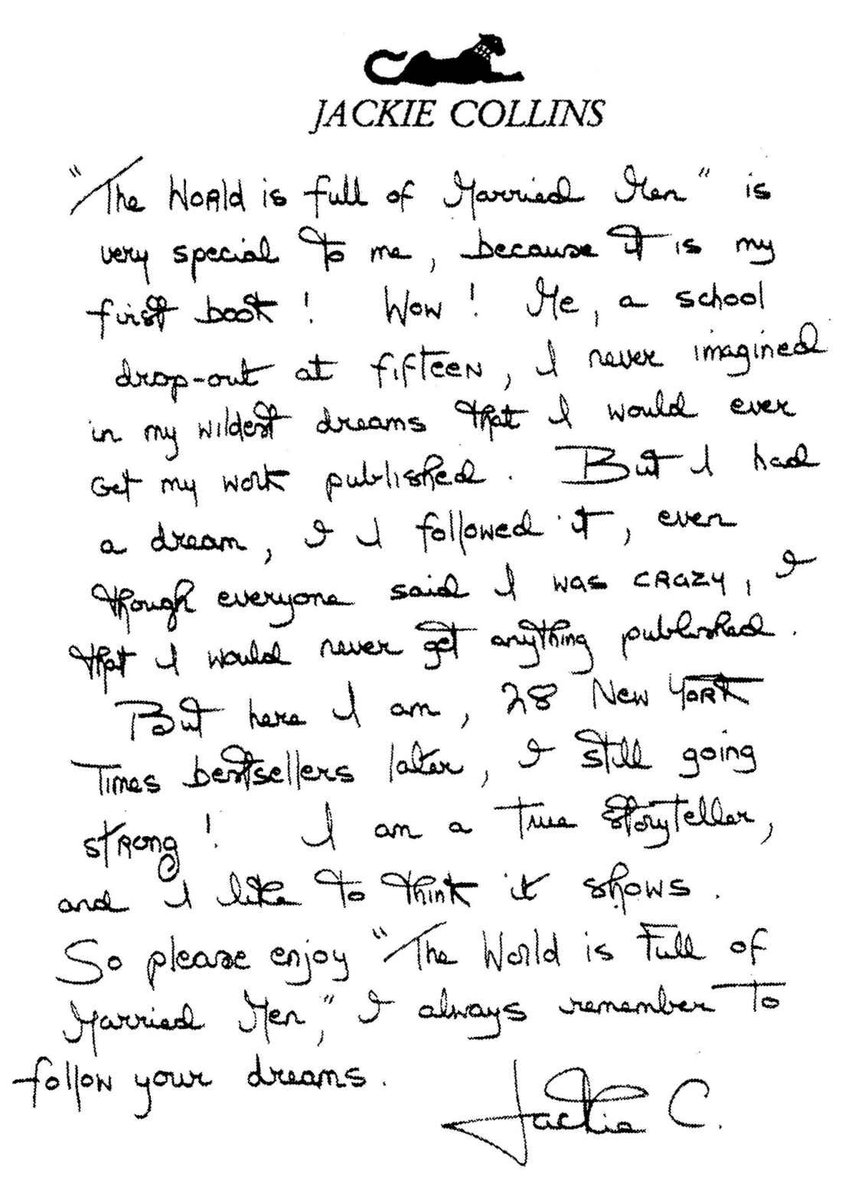 JACKIE COLLINS
"The World is full of Married Men" is
very special to me, because it is my
first book! Wow! Me, a school
drop-out at fifteen, I never imagined
in my wildest dreams that I would ever
get my work published. But I had
a dream, & I followed it, even
though everyone said I was crazy, &
that I would never get anything published.
But here I am, 28 New York
Times bestsellers later, & still going
strong! I am a true storyteller,
and I like to think it shows.
So please enjoy "The World is Full of
Married Men," & always remember to
follow your dreams.
Jackie C.